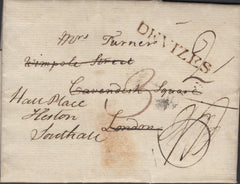 Mrs Turner
DEVIZES
Wimpole Street
Cavendish Square
Hall Place
Heston
Southall
London